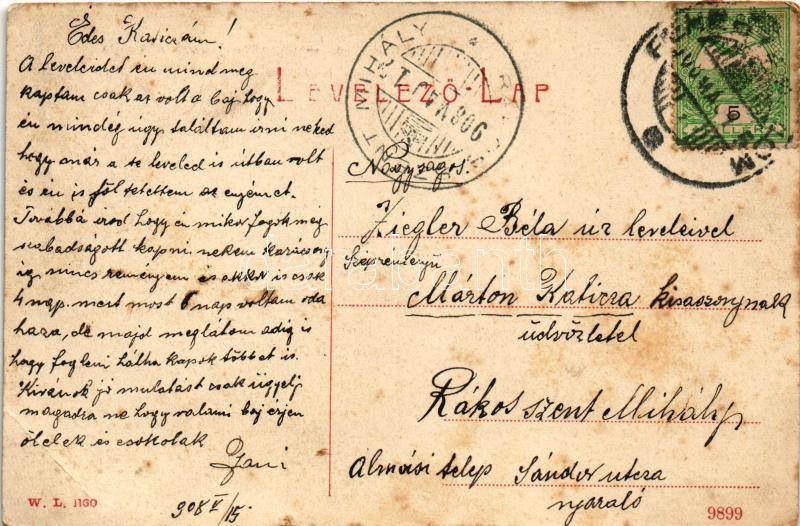 Édes Katiczám!
A leveleidet én mind meg
kaptam csak az volt a baj hogy
én mindég úgy találtam irni neked
hogy már a te leveled is útban volt
és én is föl tetettem az enyémet.
Továbbá irod hogy én mikor fogok meg
szabadságott kapni nekem Karácson
ig nincs reményem is akkor is csak
4 nap. mert most 6 nap voltam oda
haza, de majd meglátom adig is
hogy fog leni hátha kapok többet is.
Kivánok jó mulatást csak ügyelj
magadra ne hogy valami baj érjen
ölelek és csokolak
Jani
908 V/15.
W. L. 1160
LEVELEZŐ-LAP
Nagyságos.
Ziegler Béla úr leveleivel
Szépreményü
Márton Katicza kisaszonynak
üdvözletel
Rákos szent Mihály
Almási telep Sándor utcza
nyaraló
9899
MIHÁLY
5